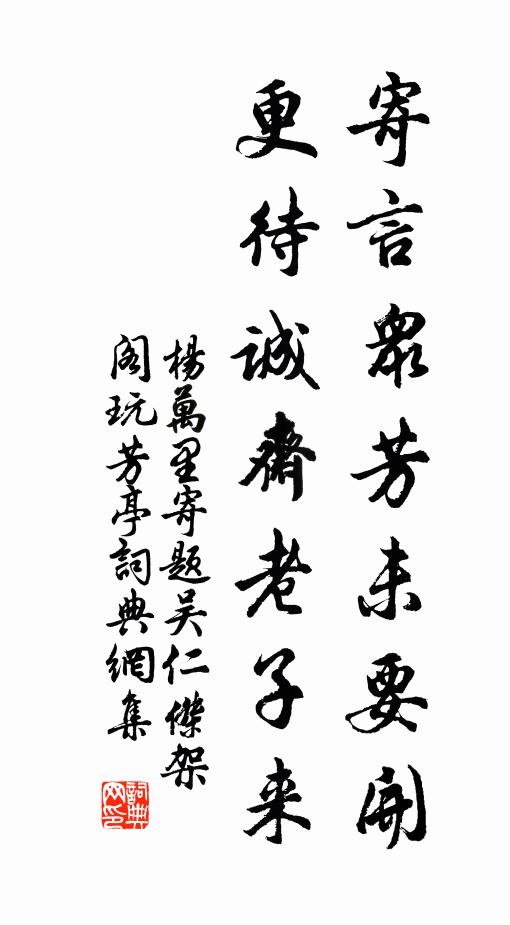 寄言眾芳未要開
更待誠齋老子来
楊萬里寄題吴仁傑架
阁玩芳亭詞典網集
詞典网印